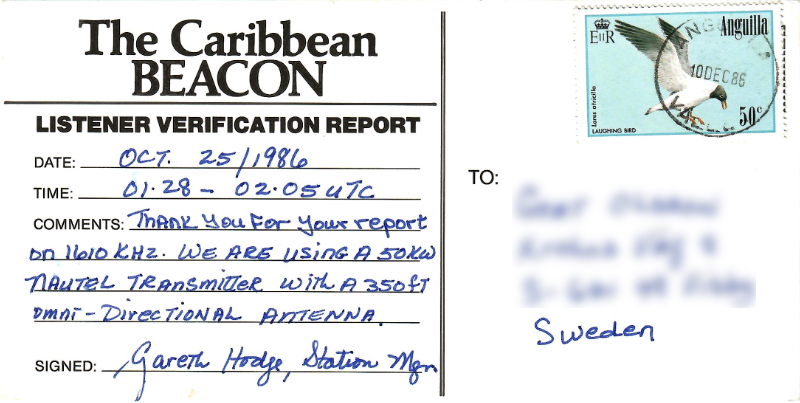 The Caribbean
BEACON
LISTENER VERIFICATION REPORT
DATE: OCT. 25/1986
TIME: 01.28 - 02.05 UTC
COMMENTS: THANK YOU FOR YOUR report
on 1610 KHZ. WE ARE USING A 50KW
NAUTEL TRANSMITTER WITH A 350FT
OMNI-DIRECTIONAL ANTENNA.
SIGNED: Gareth Hodge, Station Mgr
EIIR
Anguilla
Larus atricilla
LAUGHING BIRD
50c
10DEC86
TO:
Sweden